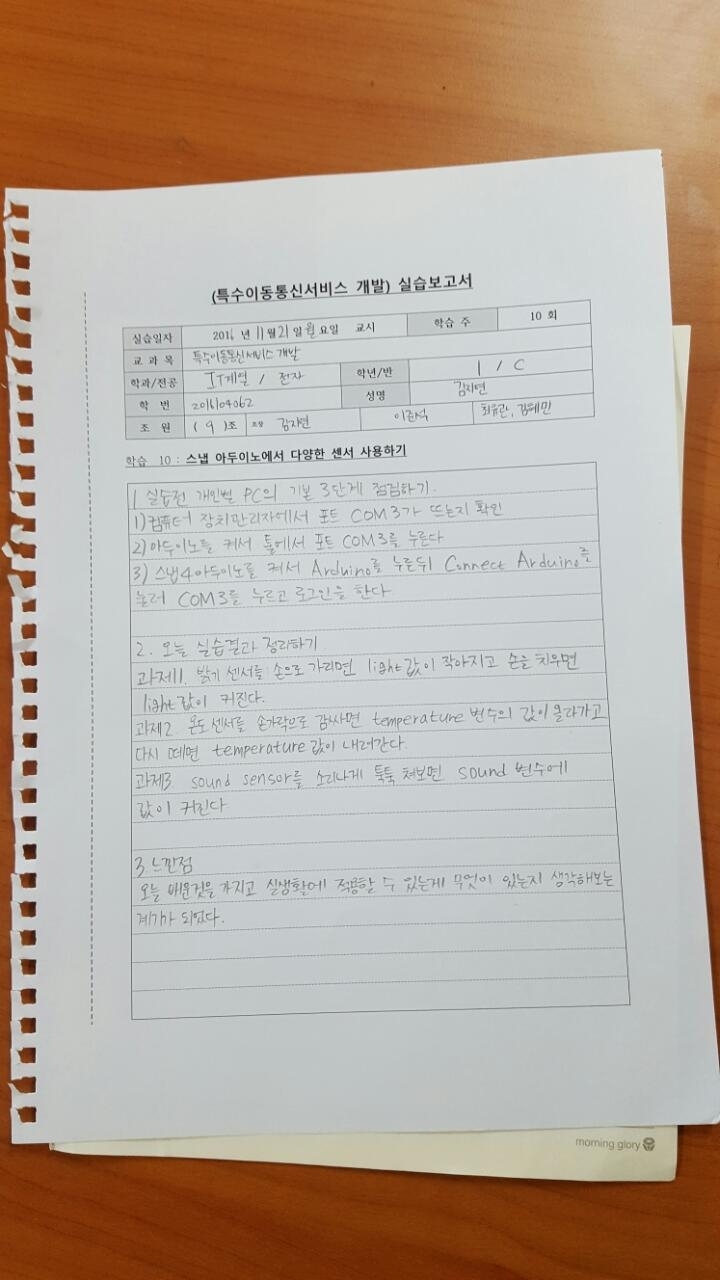 (특수이동통신서비스 개발) 실습보고서
실습일자 2016 년 11 월 21 일 월 요일 교시 학습 주 10 회
교 과 목 특수이동통신서비스 개발
학과/전공 IT계열 / 전자 학년/반 1 / C
학 번 201604062 성명 김지연
조 원 ( 9 )조 조장 김지연 이준석 최유관, 김혜민
학습 10 : 스냅 아두이노에서 다양한 센서 사용하기
1 실습전 개인별 PC의 기본 3단계 점검하기.
1) 컴퓨터 장치관리자에서 포트 COM3가 뜨는지 확인
2) 아두이노를 켜서 툴에서 포트 COM3를 누른다
3) 스냅4아두이노를 켜서 Arduino를 누른뒤 Connect Arduino를
눌러 COM3를 누르고 로그인을 한다.
2. 오늘 실습결과 정리하기
과제1. 밝기 센서를 손으로 가리면 light값이 작아지고 손을 치우면
light값이 커진다.
과제2. 온도센서를 손가락으로 감싸면 temperature 변수의 값이 올라가고
다시 떼면 temperature값이 내려간다.
과제3. sound sensor를 소리나게 툭툭 쳐보면 sound 변수에
값이 커진다
3.느낀점
오늘 배운것을 가지고 실생활에 적용할 수 있는게 무엇이 있는지 생각해보는
계기가 되었다.
morning glory